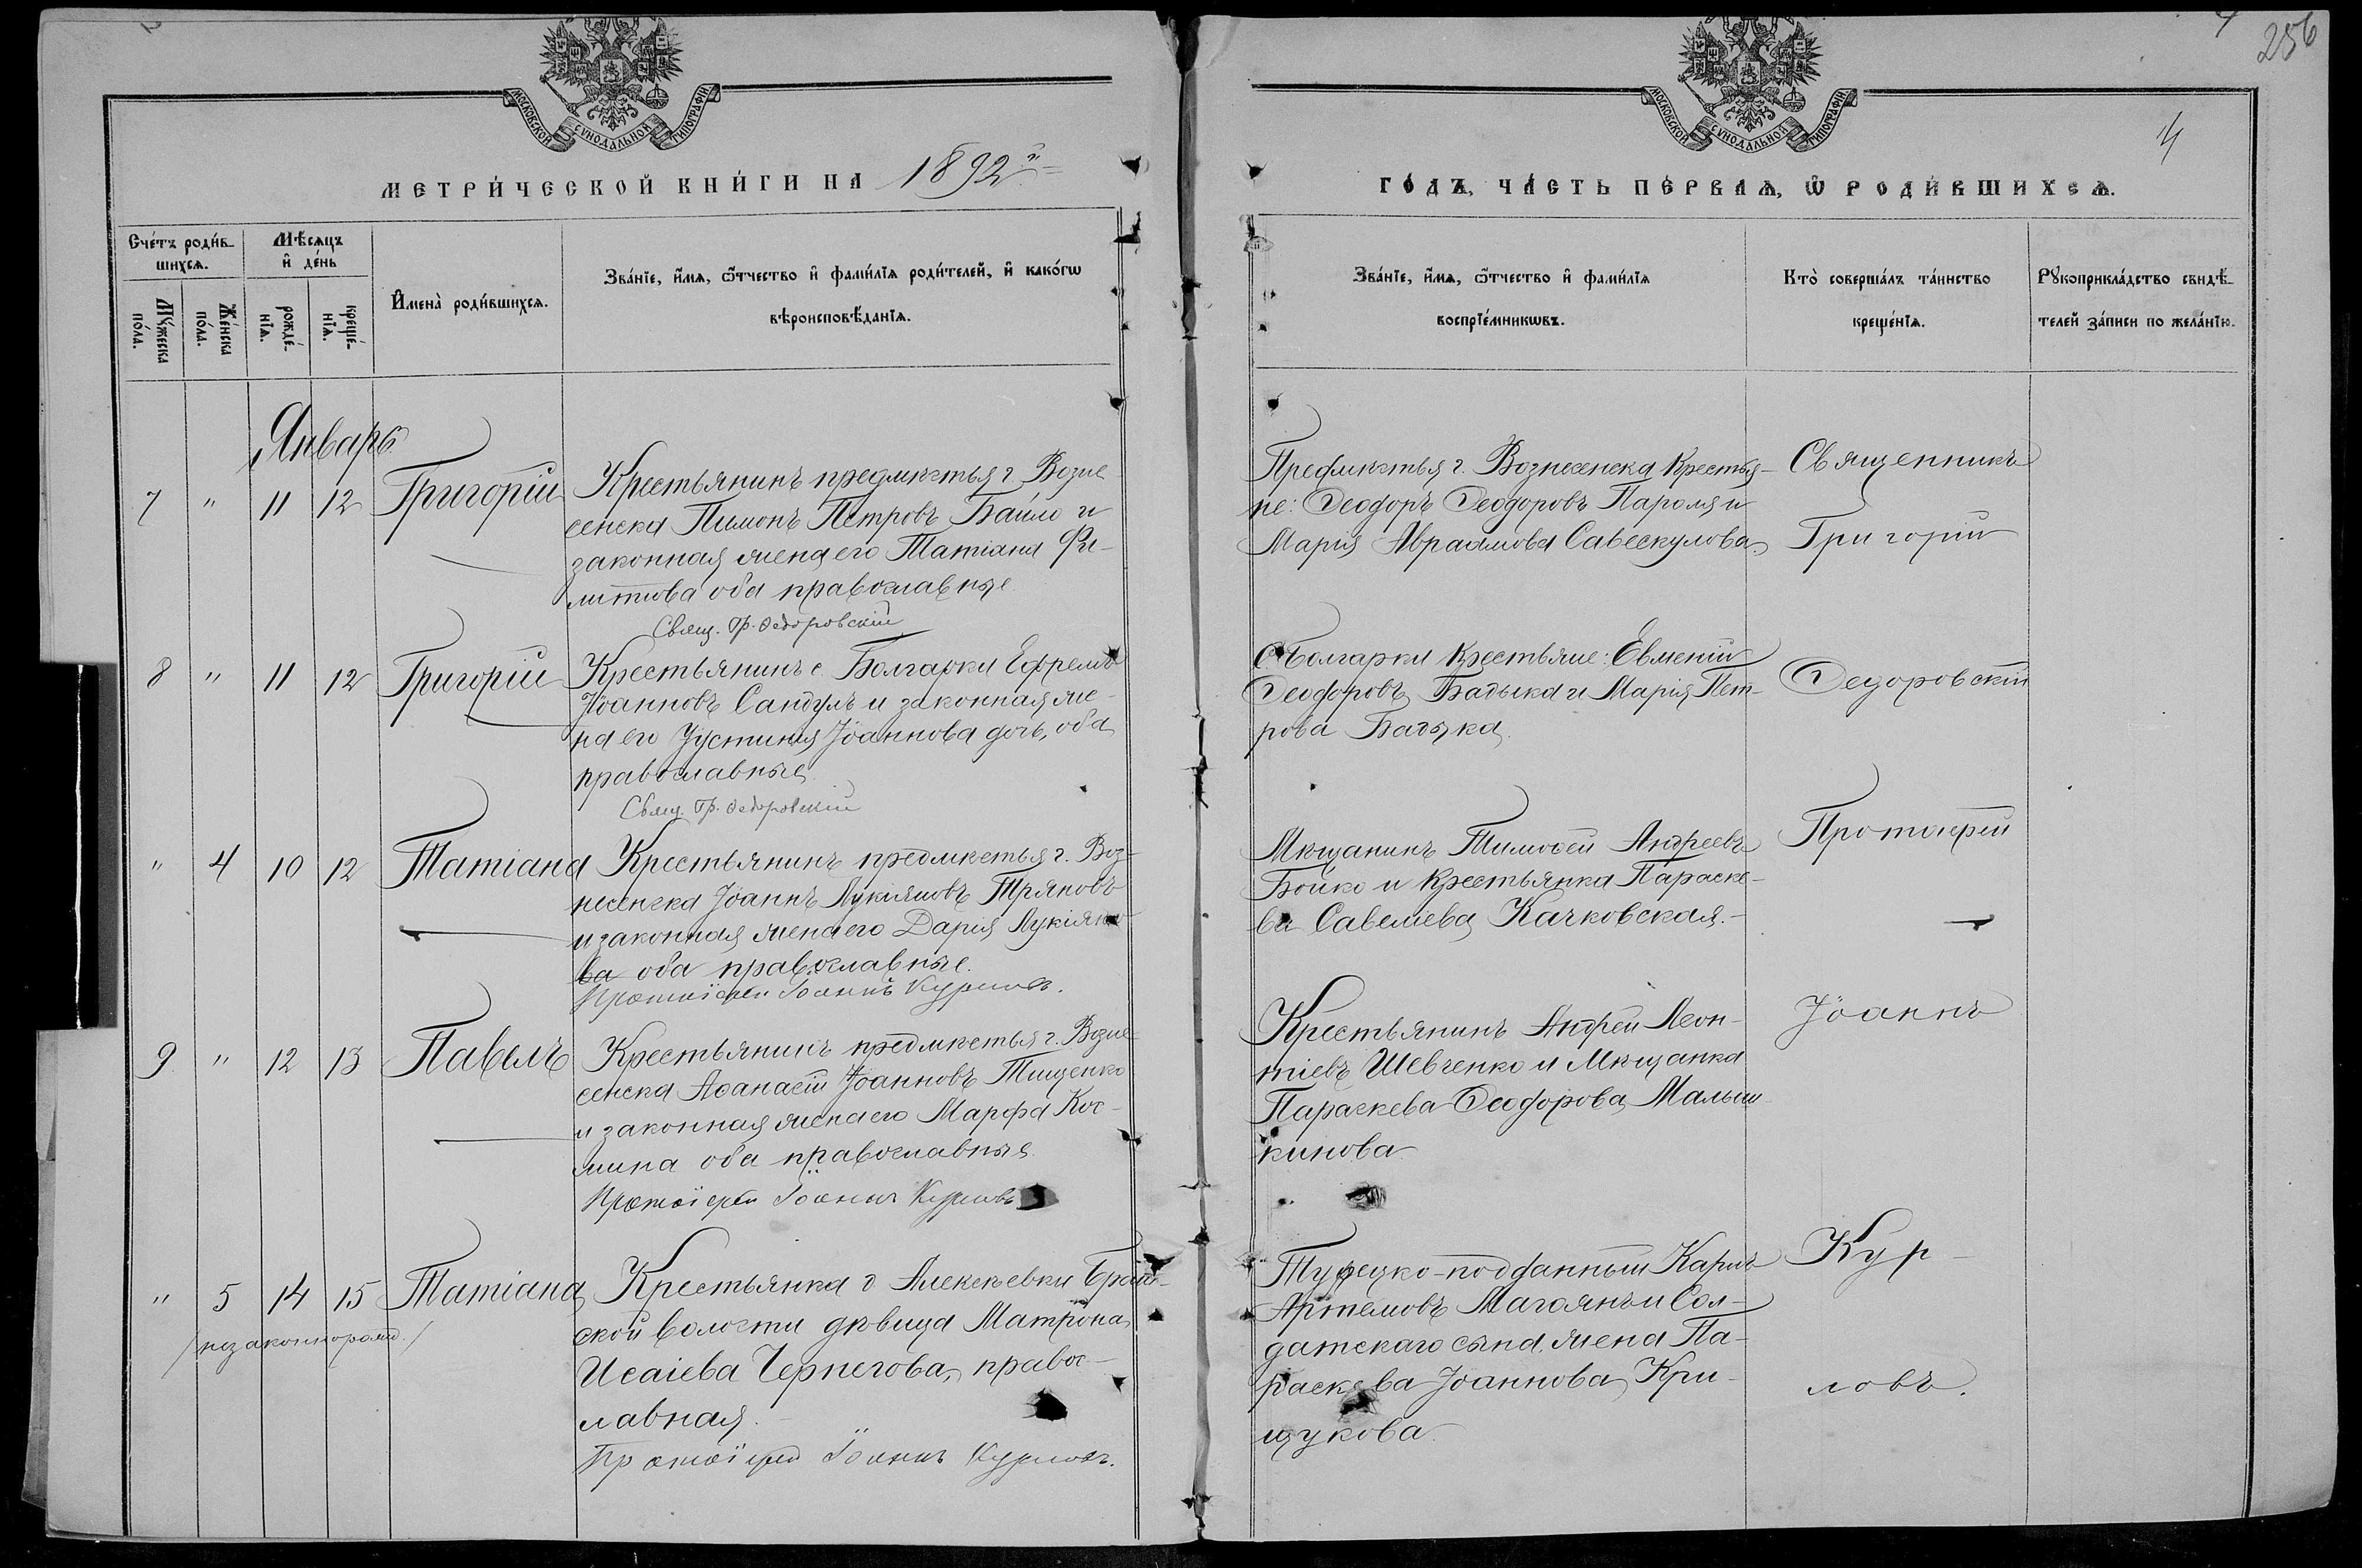 256
МОСКОВСКОЙ СѴНОДАЛЬНОЙ ТИПОГРАФІИ
МОСКОВСКОЙ СѴНОДАЛЬНОЙ ТИПОГРАФІИ
4
МЕТРИ́ЧЕСКОЙ КНИ́ГИ НА 1892й
ГО́ДЪ, ЧА́СТЬ ПЕ́РВАѦ, Ѡ҆ РОДИ́ВШИХСѦ.
Сче́тъ роди́в-
шихсѧ.
Мѣ́сѧцъ
и҆ де́нь
Мꙋ́жеска
по́ла.
Же́нска
по́ла.
рожде́-
нїѧ.
креще́-
нїѧ.
И҆мена̀ роди́вшихсѧ.
Зва́нїе, и҆́мѧ, ѻ҆́тчество и҆ фами́лїѧ роди́телей, и҆ како́гѡ
вѣроисповѣ́данїѧ.
Зва́нїе, и҆́мѧ, ѻ҆́тчество и҆ фами́лїѧ
воспрїе́мникѡвъ.
Кто̀ соверша́лъ та́инство
креще́нїѧ.
Рꙋкоприкла́дство свидѣ́-
телей за́писи по жела́нїю.
Январь
7 " 11 12 Григорій
Крестьянинъ предмѣстья г. Возне
сенска Пимонъ Петровъ Байло и
законная жена его Татіана Фи-
липпова оба православные
Свящ. Гр. Ѳедоровскій
Предмѣстья г. Вознесенска Крестья-
не: Ѳеодоръ Ѳеодоровъ Пароля и
Марія Авраамова Савескулова
Священникъ
Григорій
8 " 11 12 Григорій
Крестьянинъ с Болгарки Ефремъ
Іоанновъ Сандулъ и законная же-
на его Іустинія Іоаннова дочь, оба
православные
Свящ. Гр. Ѳедоровскій
с Болгарки Крестьяне: Евменій
Ѳеодоровъ Бадыка и Марія Пет-
рова Бадыка
Ѳедоровскій
" 4 10 12 Татіана
Крестьянинъ предмѣстья г. Воз-
несенска Іоаннъ Лукіяновъ Тряновъ
и законная жена его Дарія Лукіяно
ва оба православные.
Протоіерей Іоаннъ Курловъ.
Мѣщанинъ Тимоѳей Андреевъ
Бойко и Крестьянка Параске-
ва Савелиева Качковская.-
Протоіерей
9 " 12 13 Павелъ
Крестьянинъ предмѣстья г. Возне
сенска Аѳанасій Іоанновъ Тищенко
и законная жена его Марфа Кос-
мина оба православные
Протоіерей Іоаннъ Курловъ
Крестьянинъ Андрей Леон-
тіевъ Шевченко и Мѣщанка
Параскева Ѳеодорова Малыш-
кинова
Іоаннъ
" 5 14 15 Татіана
/незаконнорожд./
Крестьянка д Алексѣевки
ской волости дѣвица Матрона
Исаіева Чернегова, правос-
лавная.
Протоіерей Іоаннъ Курловъ.
Турецко-подданный Карпъ
Артемовъ Магоянъ и Сол-
датскаго сына жена Па-
раскева Іоаннова Кри-
щукова
Кур-
ловъ.